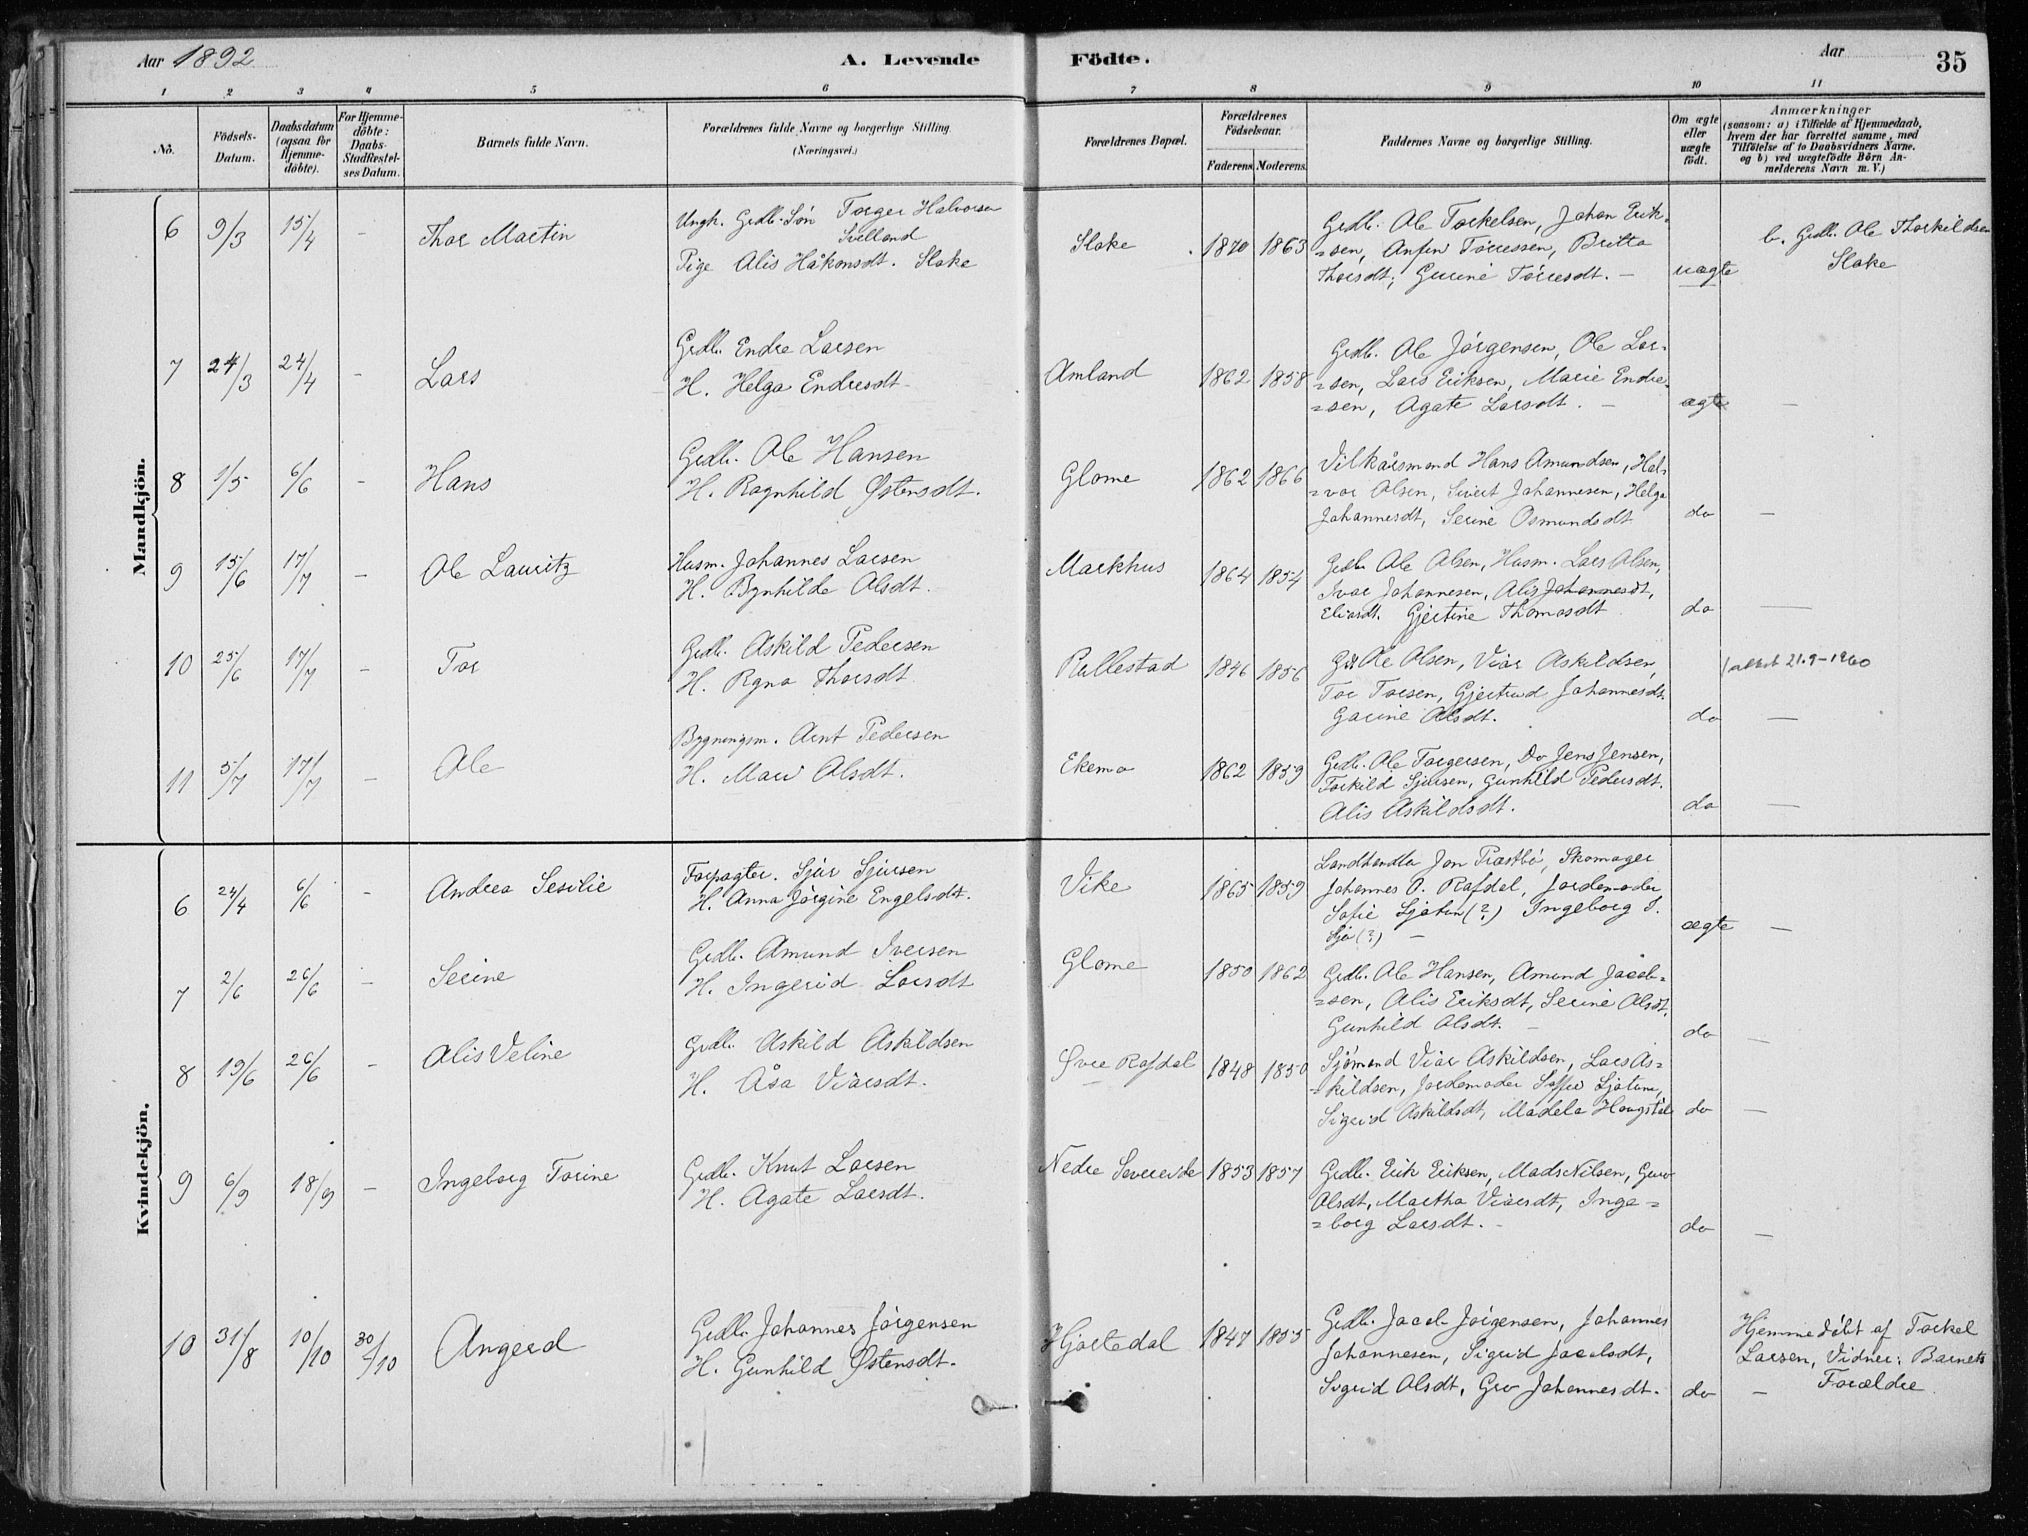 Aar 1892 A. Levende Födte. Aar 35
1 2 3 4 5 6 7 8 9 10 11
No. Födsels-Datum. Daabsdatum (ogsaa for Hjemmedöbte). For Hjemmedöbte: Daabs-Stadfæstelses Datum. Barnets fulde Navn. Forældrenes fulde Navne og borgerlige Stilling. (Næringsvei.) Forældrenes Bopæl. Forældrenes Födselsaar. Faderens. Moderens. Faddernes Navne og borgerlige Stilling. Om ægte eller uægte födt. Anmærkninger (saasom: a) i Tilfælde af Hjemmedaab, hvem der har forrettet samme, med Tilföielse af to Daabsvidners Navne. og b) ved uægtefödte Börn Anmelderens Navn m. V.)
Mandkjön.
6 9/3 15/4 - Thor Martin
Ungk. Gedb. Søn Torger Halvorsen
Svelland
Pige Alis Håkonsdt. Slake
Slake 1870 1863
Grdb. Ole Torkelsen, Johan Erik-
=sen, Anfin Tørressen, Britta
Thorsdt, Gurine Tørresdt. -
uægte
b. Grdb. Ole Thorkildsen
Slake
7 24/3 24/4 - Lars
Grdb. Endre Larsen
H. Helga Endresdt.
Amland 1862 1858
Grdb. Ole Jørgensen, Ole Lar-
=sen, Lars Eriksen, Marie Endre-
=sen, Agate Larsdt. -
ægte -
8 1/5 6/6 - Hans
Grdb. Ole Hansen
H. Ragnhild Østensdt.
Glome 1862 1866
Vilkårsmand Hans Amundsen, Hal-
=vor Olsen, Sivert Johannesen, Helga
Johannesdt, Serine Osmundsdt
do -
9 15/6 17/7 - Ole Lauritz
Husm. Johannes Larsen
H. Bynhilde Olsdt.
Markhus 1864 1854
Grdb. Ole Olsen, Husm. Lars Olsen,
Ivar Johannesen, Alis Johannesdt,
Eliasdt. Gjertine Thomasdt
do -
10 25/6 17/7 - Tor
Grdb. Askild Pedersen
H. Rgna Thorsdt.
Rullestad 1846 1856
Ole Olsen, Viar Askildsen,
Tor Torsen, Gjertrud Johannesdt.
Garine Olsdt.
do -
21.9-1960
11 5/7 17/7 - Ole
Bygningsm. Arnt Pedersen
H. Mari Olsdt.
Ekemo 1862 1859
Grdb. Ole Torgersen, Do Jens Jensen,
Torkild Sjursen, Gunhild Pedersdt.
Alis Askildsdt.
do -
Kvindekjön.
6 24/4 6/6 - Andrea Sesilie
Forpagter. Sjur Sjursen
H. Anna Jørgine Engelsdt.
Vike 1865 1859
Landhandler Jon Præstbø, Skomager
Johannes O. Rafdal, Jordemoder
Sofie Ljotun (?) Ingeborg S.
Sjo (?) -
ægte -
7 2/6 26/6 - Serine
Grdb. Amund Iversen
H. Ingerid Larsdt
Glome 1850 1862
Grdb. Ole Hansen, Amund Jacob-
=sen, Alis Eriksdt, Serine Olsdt.
Gunhild Olsdt. -
do -
8 19/6 26/6 - Alis Veline
Grdb. Askild Askildsen
H. Åsa Viarsdt.
Øvre Rafdal 1848 1850
Sjømand Viar Askildsen, Lars As-
=kildsen, Jordemoder Soffie Ljotun,
Sigrid Askildsdt, Madela Hougstøl
do -
9 6/9 18/9 - Ingeborg Torine
Grdb. Knut Larsen
H. Agate Larsdt.
Nedre Severeide 1853 1857
Grdb. Erik Eriksen, Mads Nilsen, Guro
Olsdt, Martha Viarsdt, Inge-
=borg Larsdt. -
do -
10 31/8 10/10 30/10 Angerd
Grdb. Johannes Jørgensen
H. Gunhild Østensdt.
Hjortedal 1847 1855
Grdb. Jacob Jørgensen, Johannes
Johannesen, Sigrid Jacobsdt,
Sigrid Olsdt, Gro Johannesdt.
do -
Hjemmedøbt af Torkel
Larsen, Vidner: Barnets
Forældre